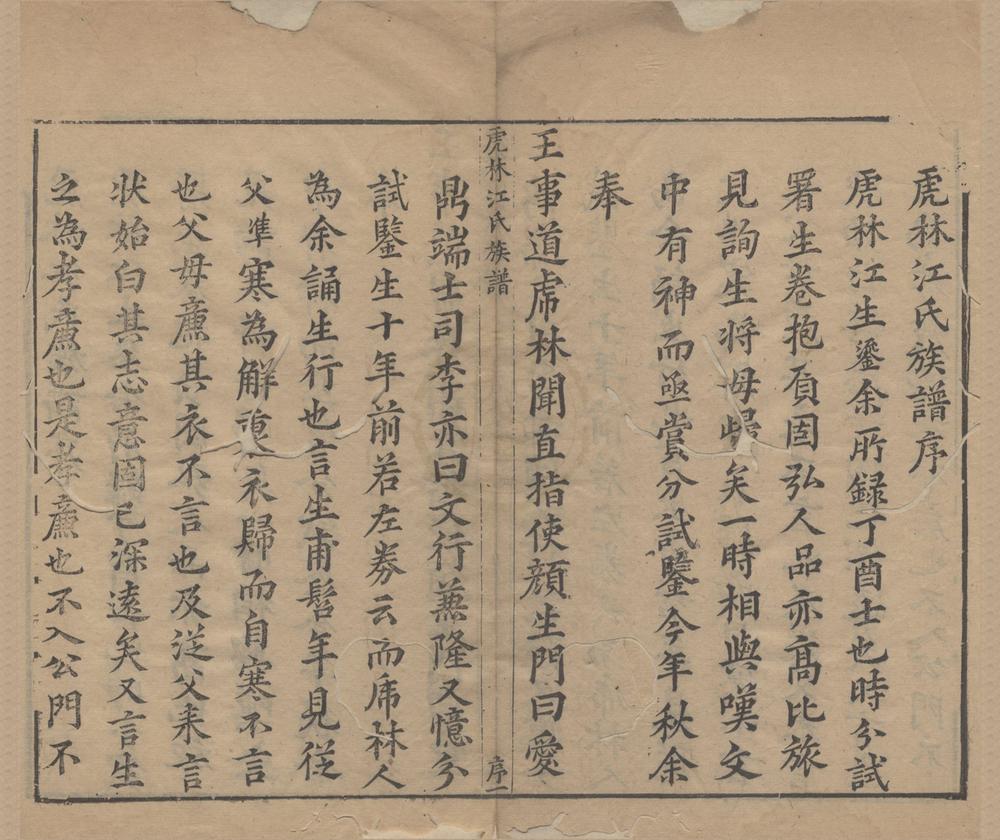 虎林江氏族譜序
虎林江生鑒余所録丁酉士也時分試
署生卷抱負固弘人品亦髙比旅
見詢生将毋歸矣一時相與嘆文
中有神而亟賞分試鑒今年秋余
奉
王事道虎林聞直指使顔生門曰愛
虎林江氏族譜
序一
鼎端士司李亦曰文行兼隆又憶分
試鑒生十年前若左劵云而虎林人
為余誦生行也言生甫髫年見從
父凖寒為解裘衣歸而自寒不言
也父毋廉其衣不言也及從父来言
状始白其志意固已深遠矣又言生
之為孝廉也是孝廉也不入公門不